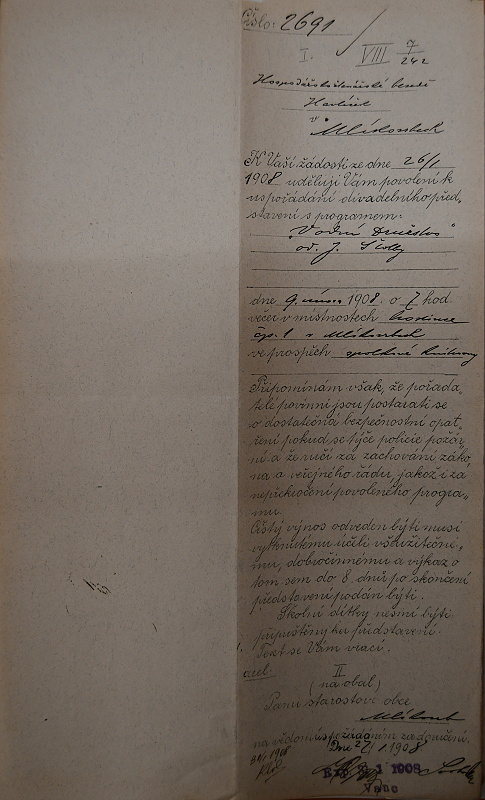 Číslo: 2691
I. VIII 7/242
Hospodářskočtenářské besedě
Havlíček
v
K Vaší žádosti ze dne 26/1
1908 uděluji Vám povolení k
uspořádání divadelního před„
stavení s programem:
"Vodní Družstvo"
od J. Štolby
dne 9. února 1908 o 7 hod.
večer v místnostech hostince
čp. 1 v
ve prospěch spolkové knihovny
Připomínám však, že pořada„
telé povinni jsou postarati se
o dostatečná bezpečnostní opat„
ření pokud se týče policie požár„
ní a že ručí za zachování záko„
na a veřejného řádu, jakož i za
nepřekročení povoleného progra„
mu.
Čistý výnos odveden býti musí
vytknutému účeli všeužitečné„
mu, dobročinnému a výkaz o
tom sem do 8 dnů po skončení
představení podán býti.
Školní dítky nesmí býti
připuštěny ku představení.
Text se Vám vrací.
II
(na obal)
Panu starostovi obce
na vědomí
Dne 27/1 1908
31/1 1908
1 1908